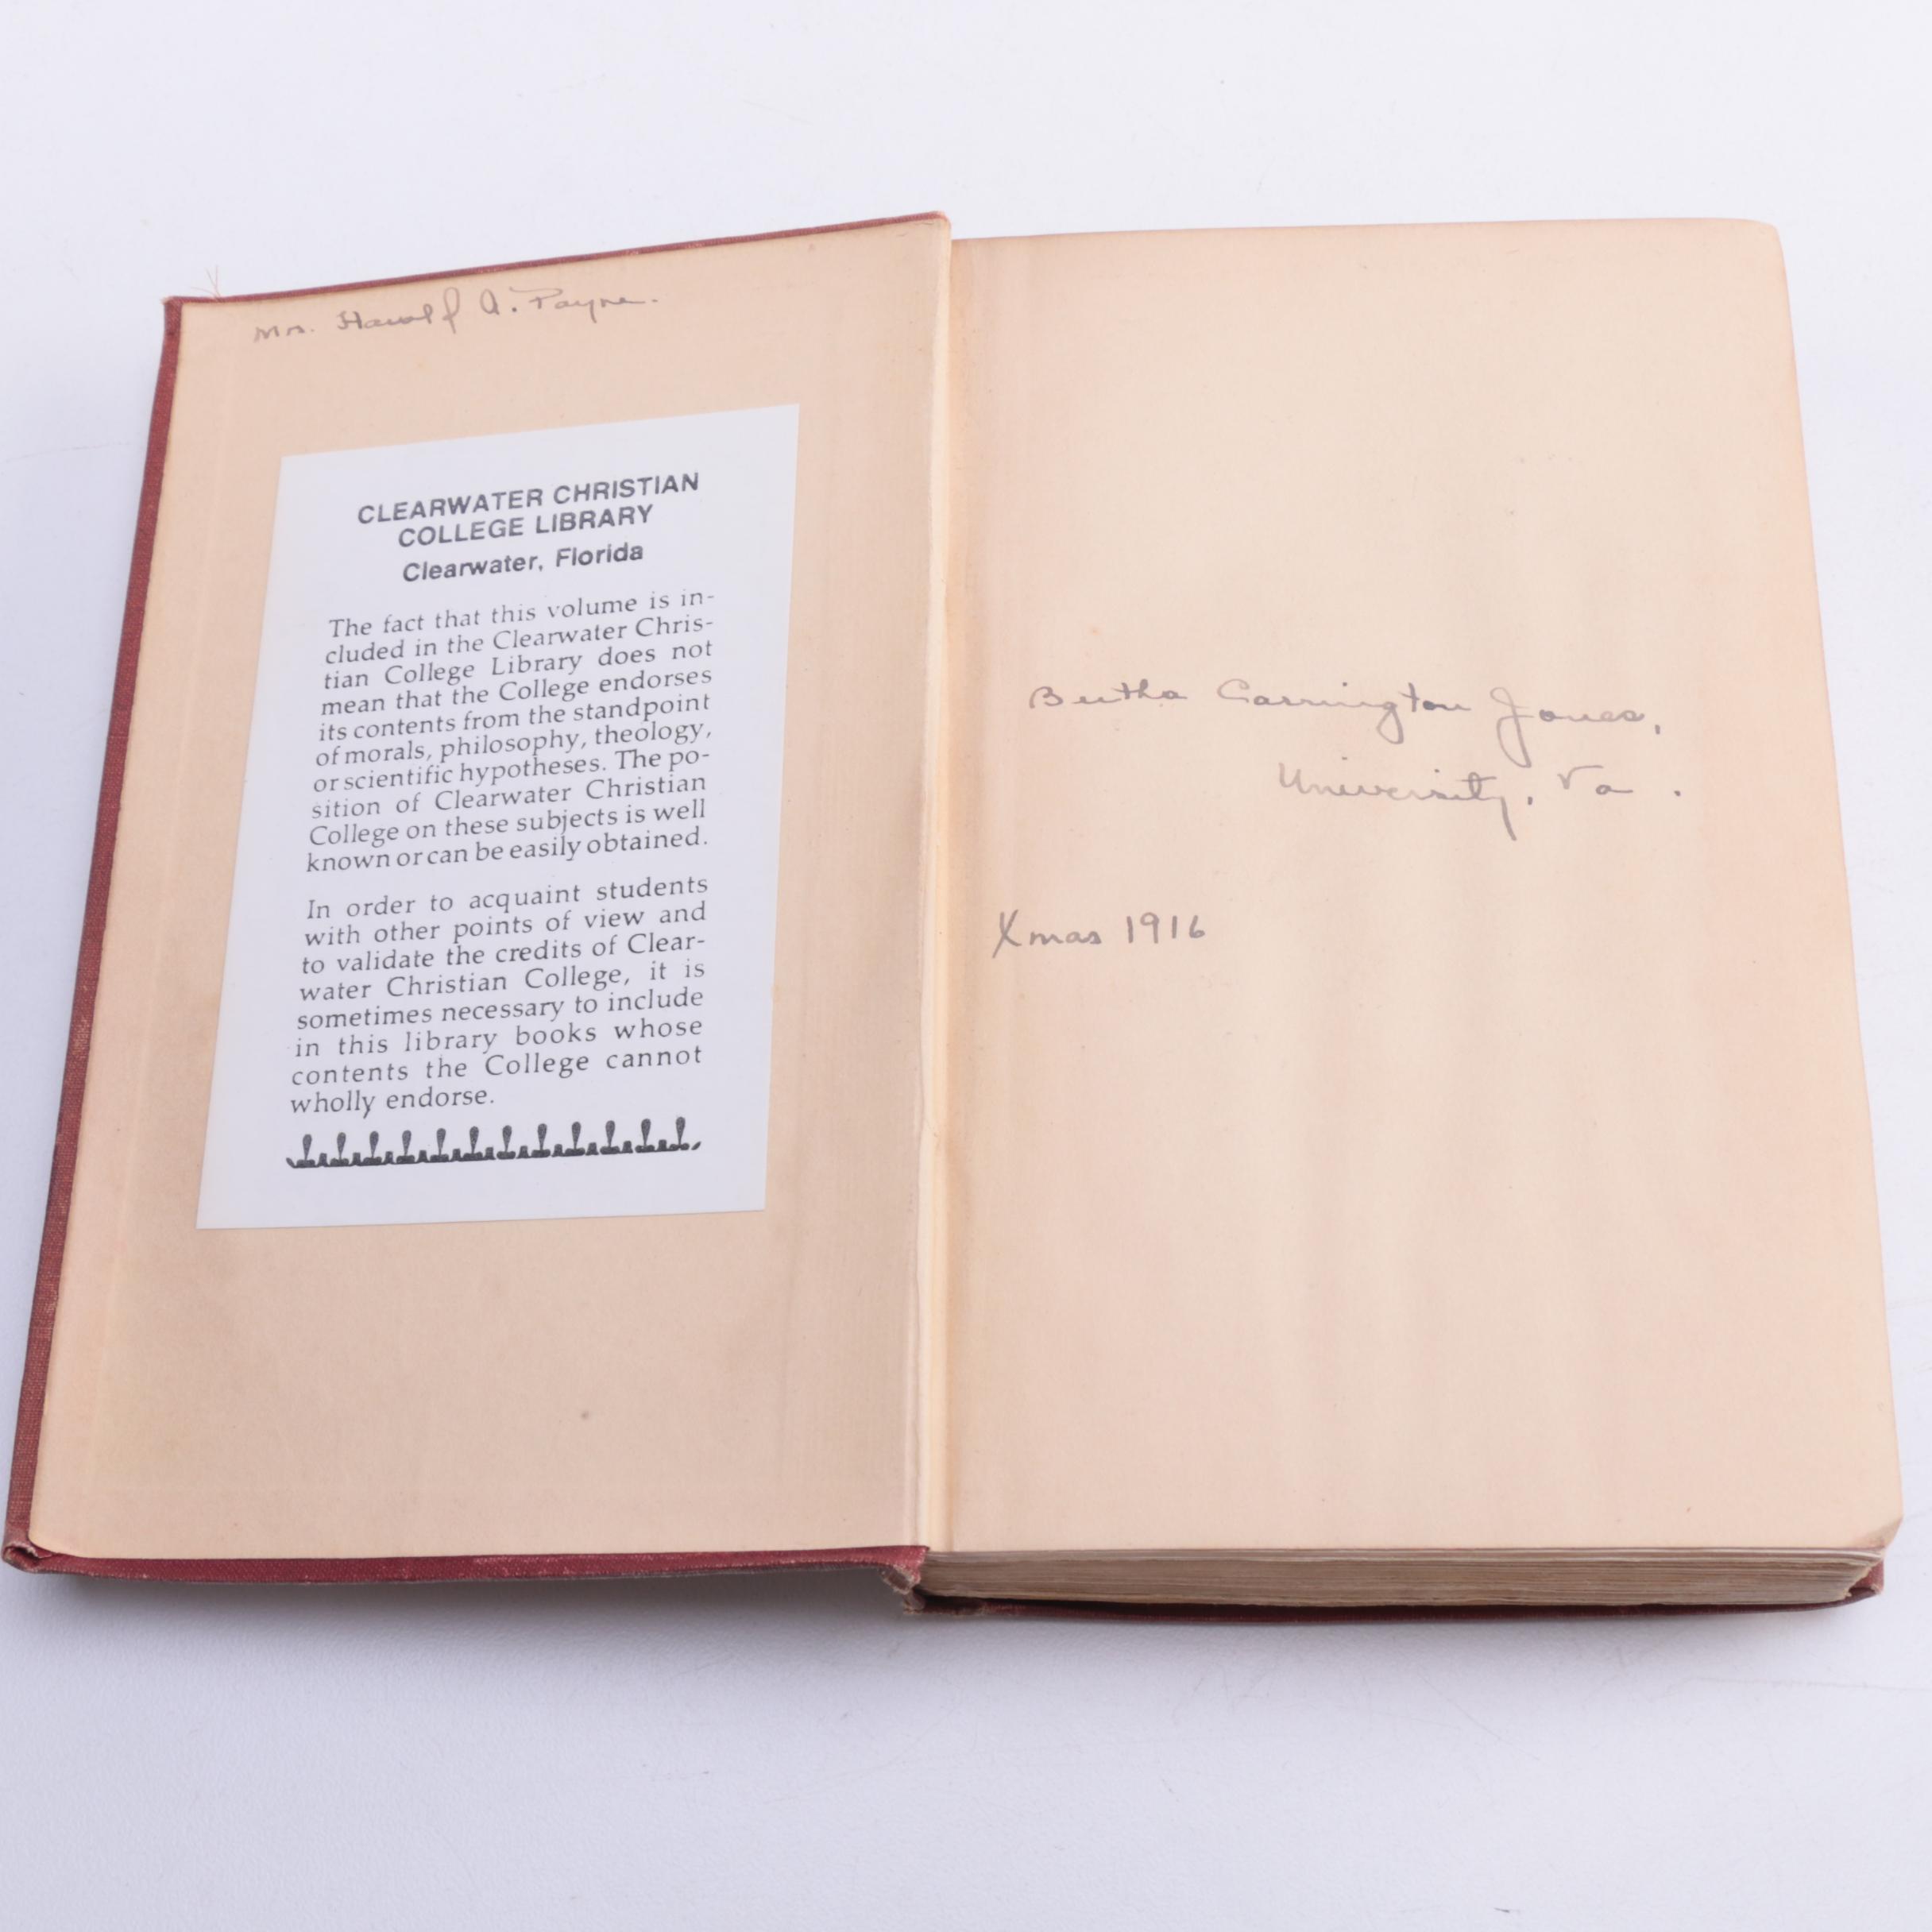 Mrs. Harold A. Payne.
CLEARWATER CHRISTIAN
COLLEGE LIBRARY
Clearwater, Florida
The fact that this volume is in-
cluded in the Clearwater Chris-
tian College Library does not
mean that the College endorses
its contents from the standpoint
of morals, philosophy, theology,
or scientific hypotheses. The po-
sition of Clearwater Christian
College on these subjects is well
known or can be easily obtained.
In order to acquaint students
with other points of view and
to validate the credits of Clear-
water Christian College, it is
sometimes necessary to include
in this library books whose
contents the College cannot
wholly endorse.
Bertha Carrington Jones,
University, Va.
Xmas 1916